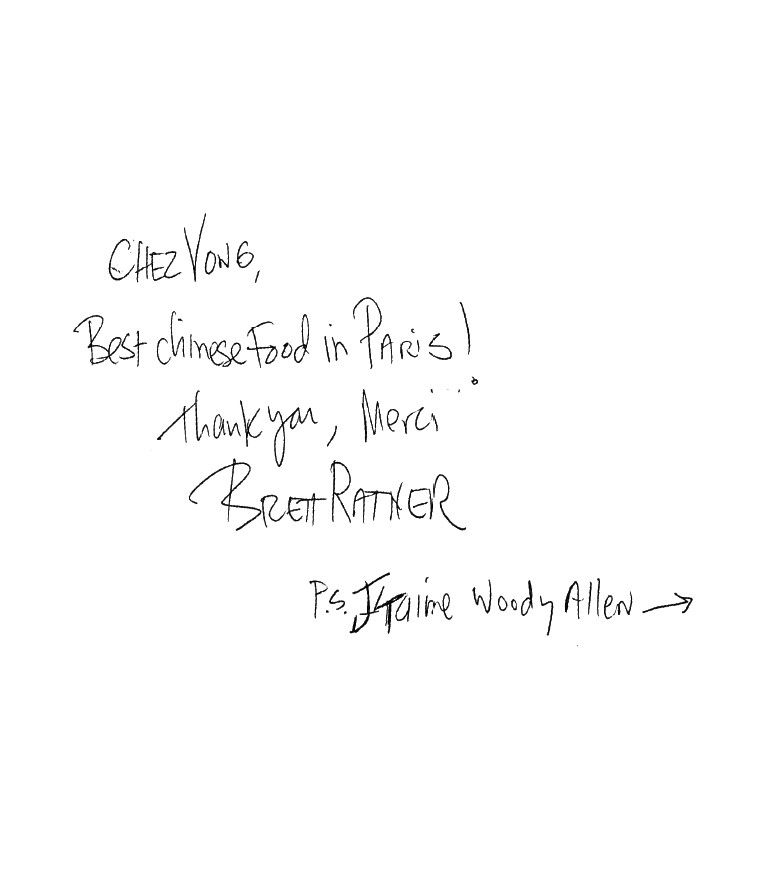 CHEZ VONG,
Best chinese Food in PARIS!
thank you, Merci
BRETT RATNER
P.S. J t'aime Woody Allen →